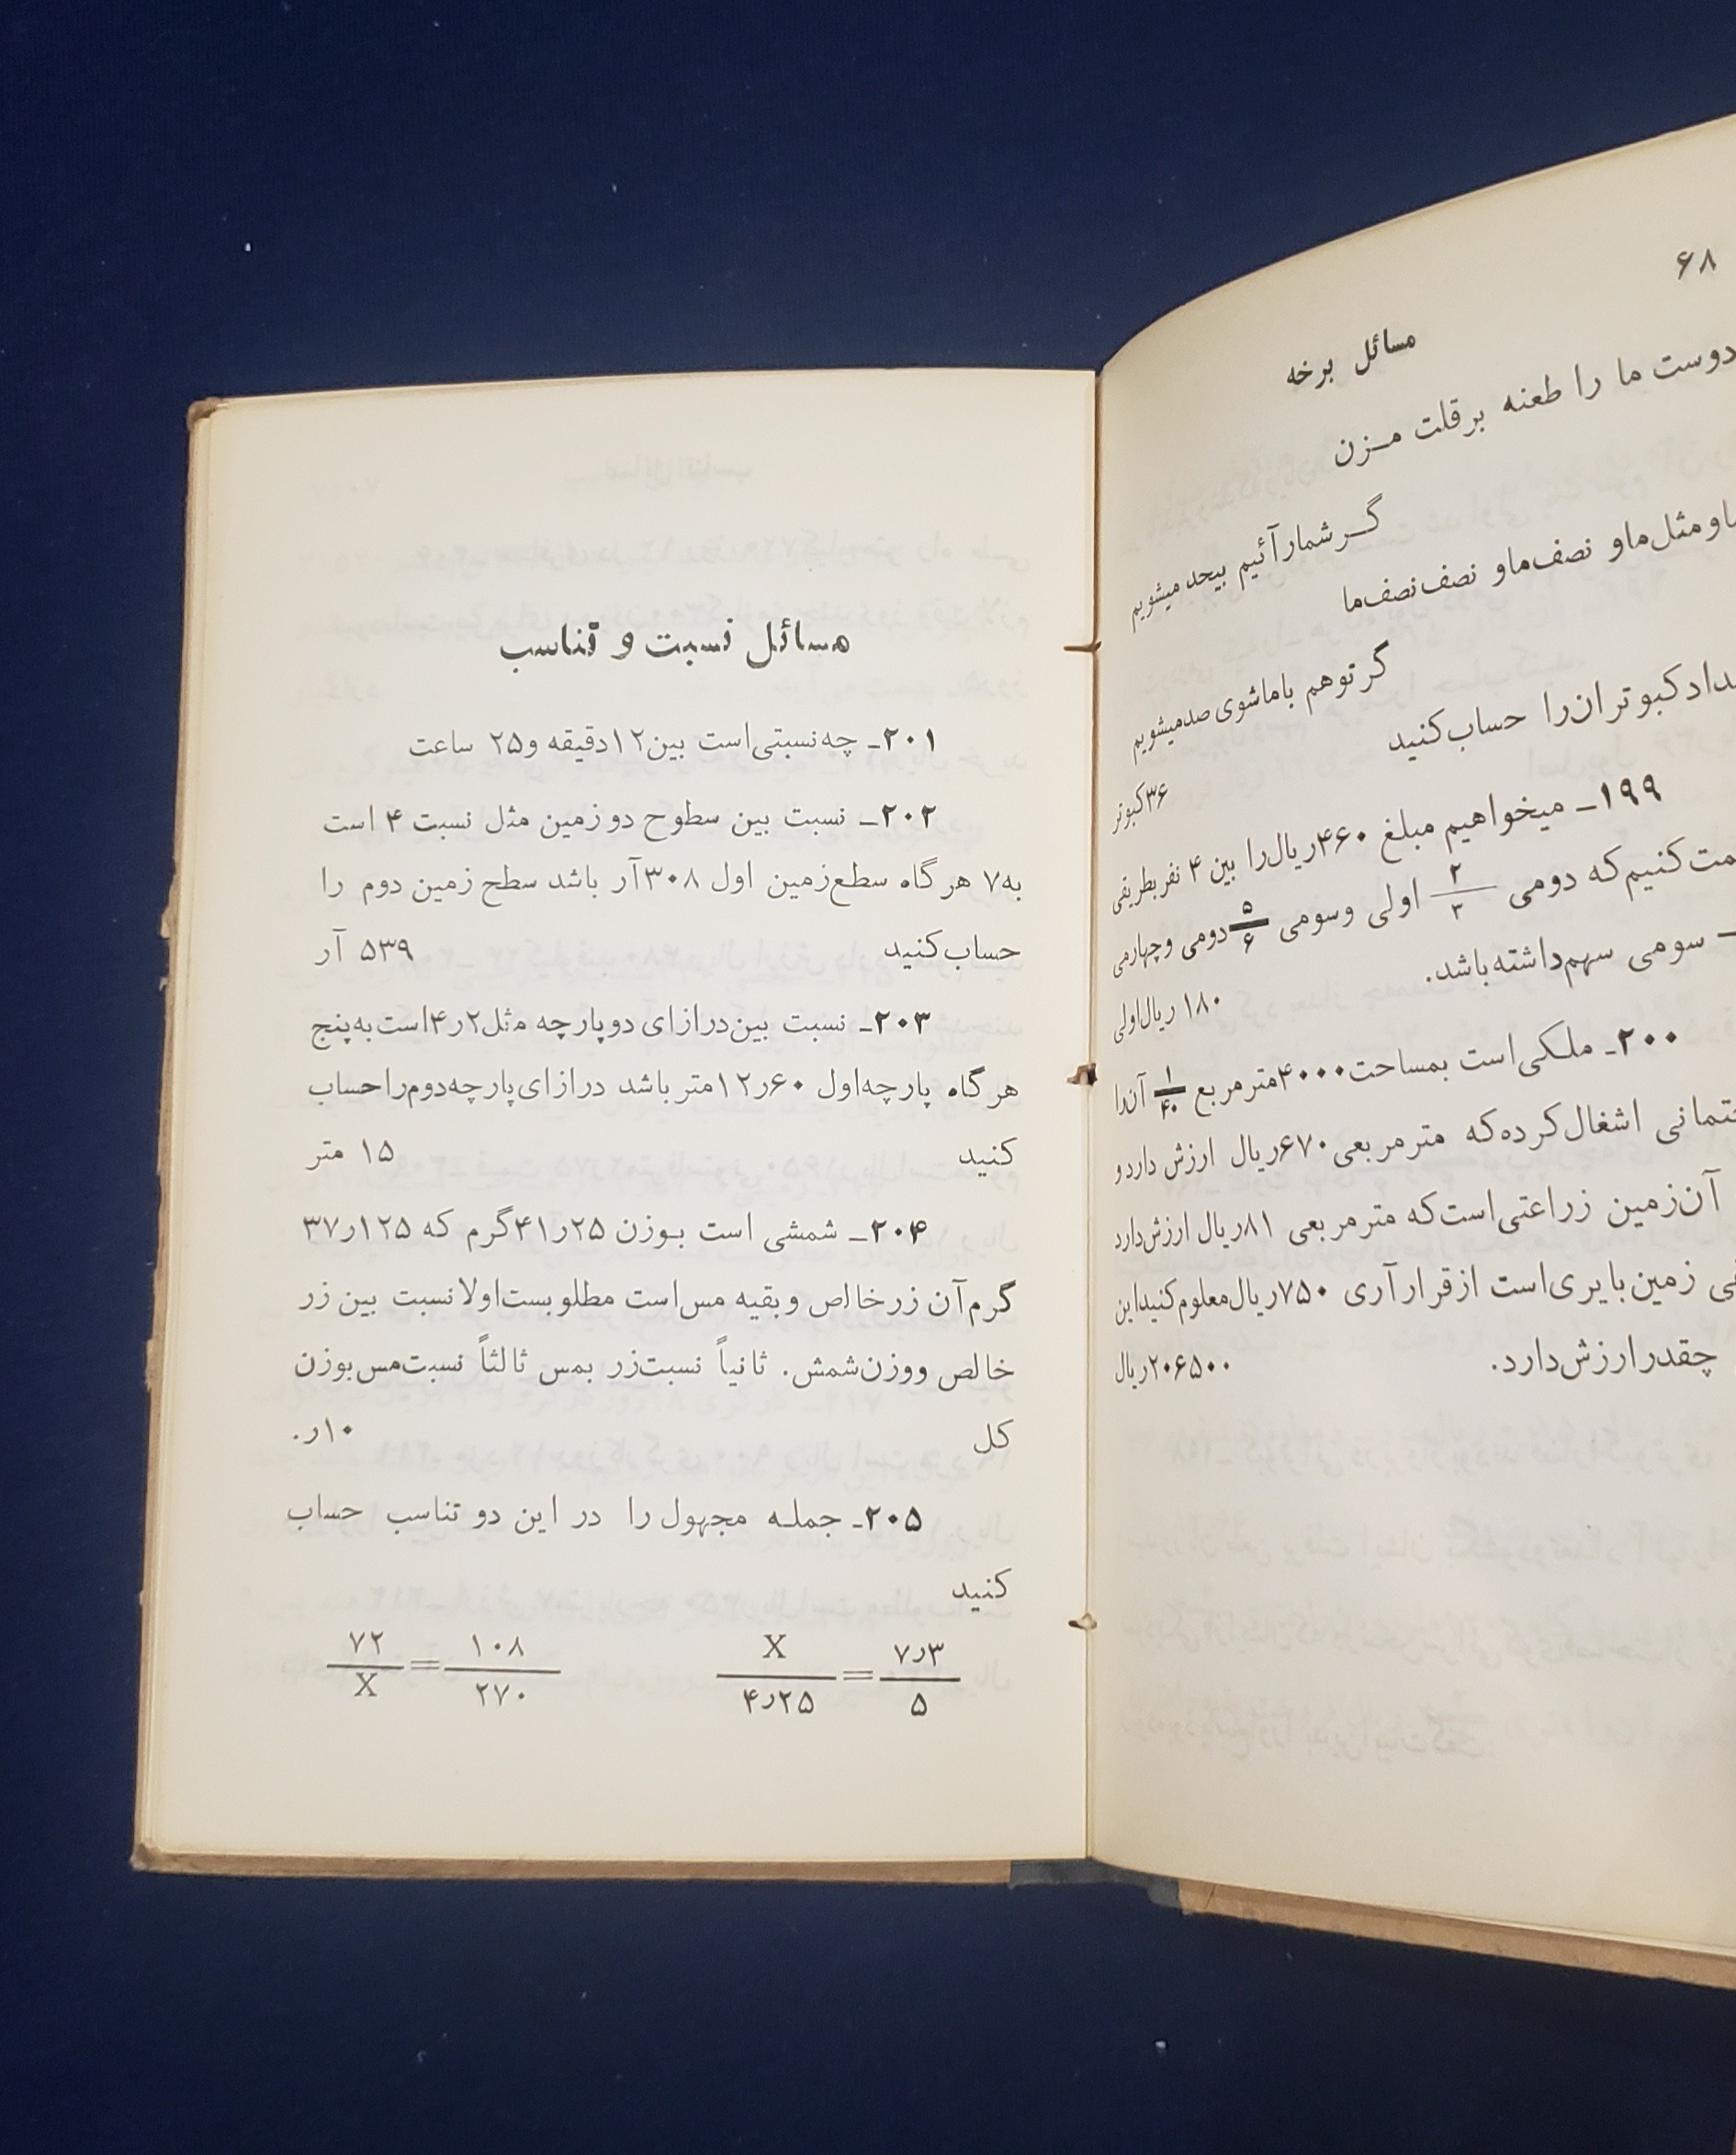 ۶۸
مسائل برخه
دوست ما را طعنه بر قلت مـزن
گـر شمار آئیم بیحد میشویم
و مثل ما و نصف ما و نصف نصف ما
گر تو هم با ما شوی صد میشویم
کبوتران را حساب کنید
۳۶ کبوتر
۱۹۹ـ میخواهیم مبلغ ۴۶۰ ریال را بین ۴ نفر بطریقی
کنیم که دومی ۲/۳ اولی و سومی ۵/۶ دومی و چهارمی
سومی سهم داشته باشد.
۱۸۰ ریال اولی
۲۰۰ـ ملکی است بمساحت ۴۰۰۰ متر مربع ۱/۴۰ آن را
اشغال کرده که متر مربعی ۶۷۰ ریال ارزش دارد و
آن زمین زراعتی است که متر مربعی ۸۱ ریال ارزش دارد
زمین بایری است از قرار آری ۷۵۰ ریال معلوم کنید این
چقدر ارزش دارد.
۲۰۶۵۰۰ ریال
مسائل نسبت و تناسب
۲۰۱ـ چه نسبتی است بین ۱۲ دقیقه و ۲۵ ساعت
۲۰۲ـ نسبت بین سطوح دو زمین مثل نسبت ۴ است
به ۷ هر گاه سطع زمین اول ۳۰۸ آر باشد سطح زمین دوم را
حساب کنید ۵۳۹ آر
۲۰۳ـ نسبت بین درازای دو پارچه مثل ۲ر۴ است به پنج
هر گاه پارچه اول ۶۰ر۱۲ متر باشد درازای پارچه دوم را حساب
کنید ۱۵ متر
۲۰۴ـ شمشی است بـوزن ۲۵ر۴۱ گرم که ۱۲۵ر۳۷
گرم آن زر خالص و بقیه مس است مطلوبست اولا نسبت بین زر
خالص و وزن شمش. ثانیاً نسبت زر بمس ثالثاً نسبت مس بوزن
کل ۱۰ر۰
۲۰۵ـ جملـه مجهول را در این دو تناسب حساب
کنید
X/۴ر۲۵ = ۷ر۳/۵ ۷۲/X = ۱۰۸/۲۷۰